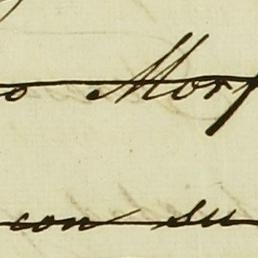 o Mor
con su